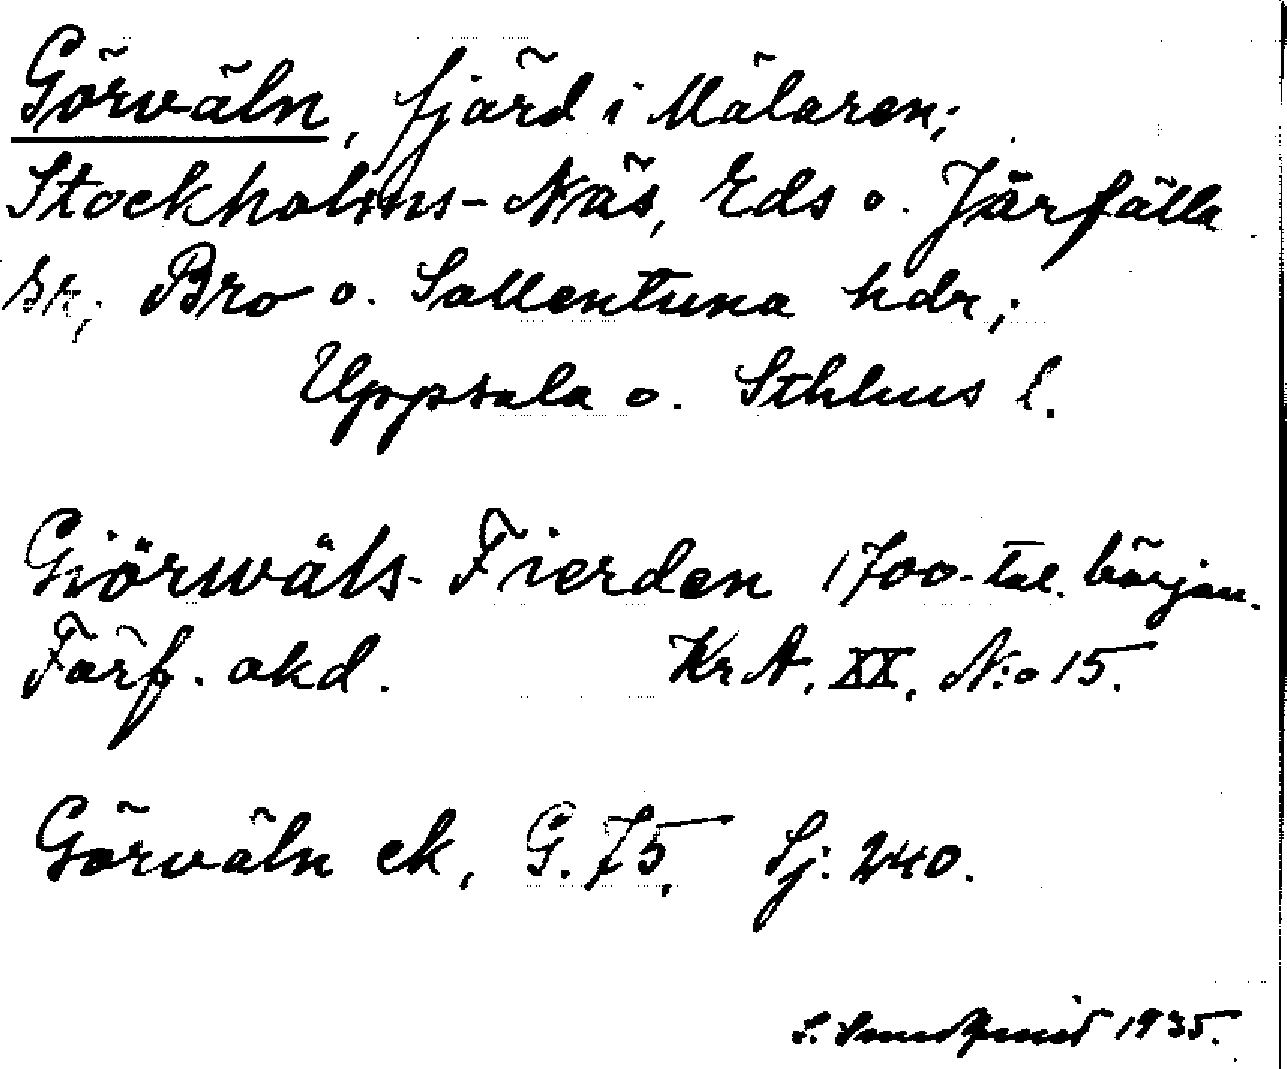 Görväln, fjärd i Mälaren;
Stockholms-Näs, Eds o. Järfälla
sk; Bro o. Sollentuna hdr;
Uppsala o. Sthlms l.
Giörwäls-Fierden 1700-tal. början.
Förf. okd. KrA, XX, N:o 15.
Görväln ek, G. 75, Sj: 240.
S. 1935.